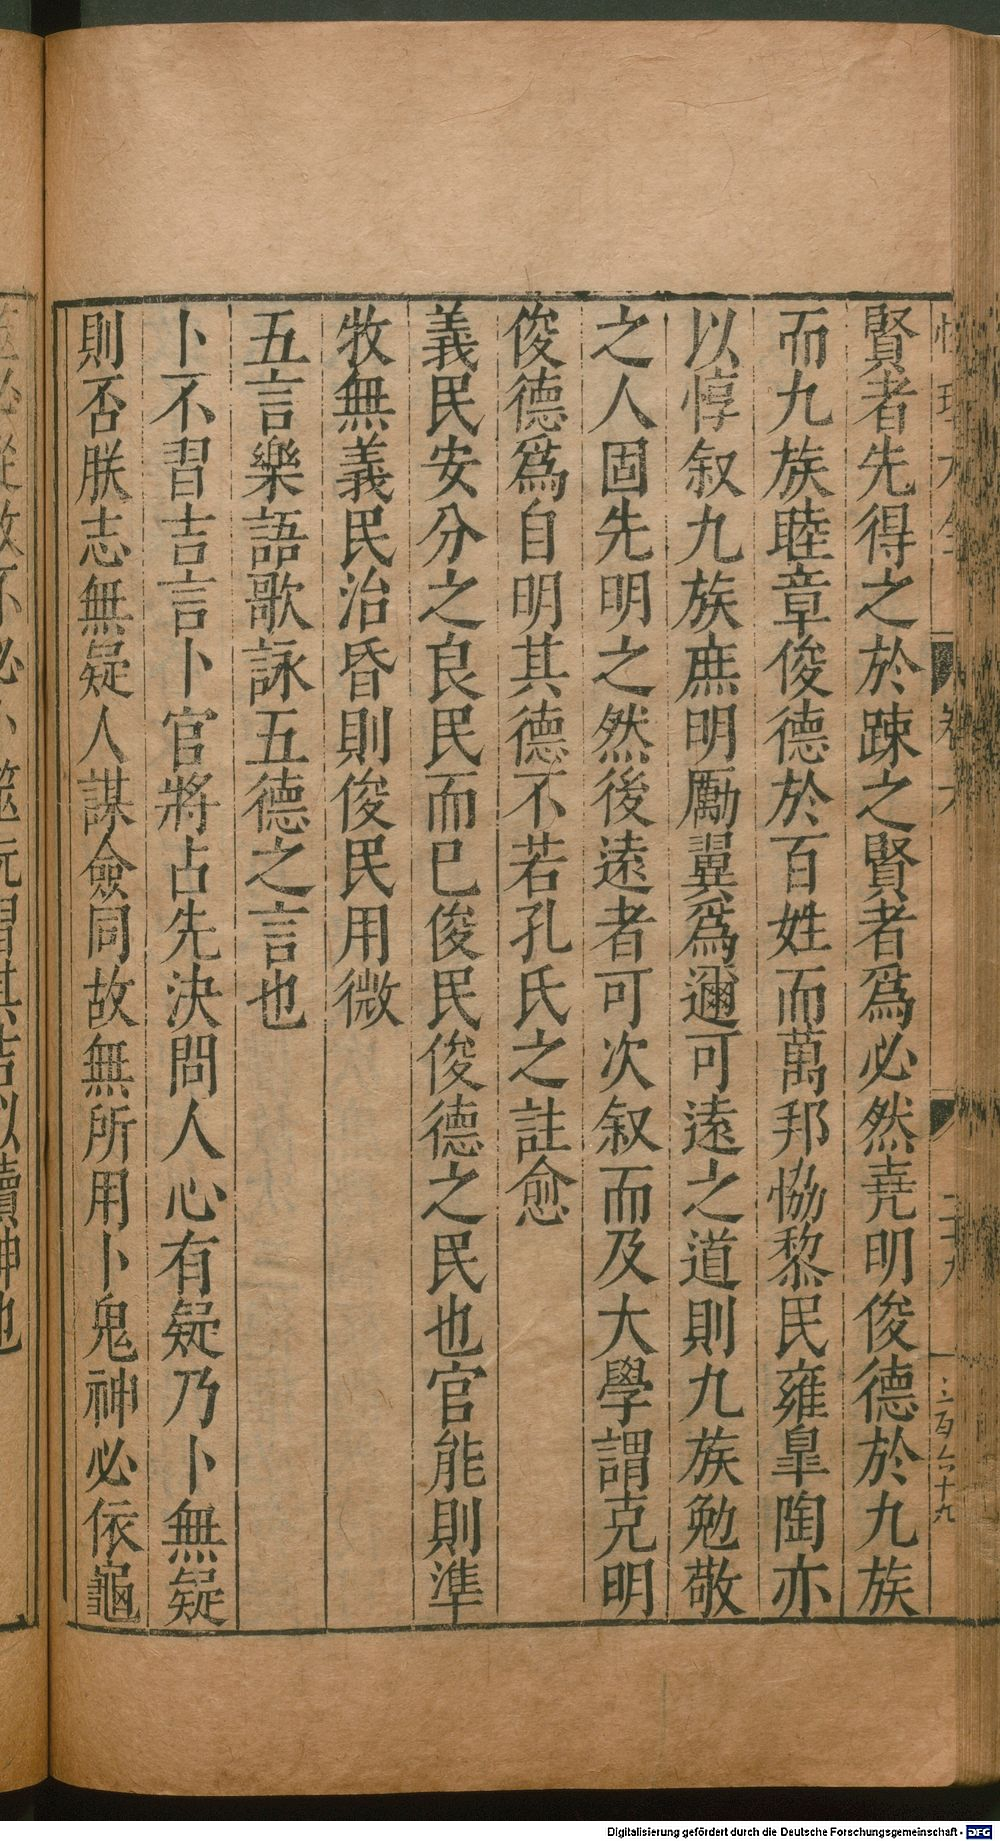 賢者先得之於踈之賢者爲必然堯明俊德於九族
而九族睦章俊德於百姓而萬邦恊黎民雍臯陶亦
以惇叙九族庶明勵翼爲邇可逺之道則九族勉敬
之人固先明之然後逺者可次叙而及大學謂克明
俊德爲自明其德不若孔氏之註愈
義民安分之良民而已俊民俊德之民也官能則準
牧無義民治昏則俊民用微
五言樂語歌詠五德之言也
卜不習吉言卜官將占先決問人心有疑乃卜無疑
則否朕志無疑人謀僉同故無所用卜鬼神必依龜
筮必從故不必卜筮玩習其吉以瀆神也
卷六
二十九
三百六十九
Digitalisierung gefördert durch die Deutsche Forschungsgemeinschaft - DFG